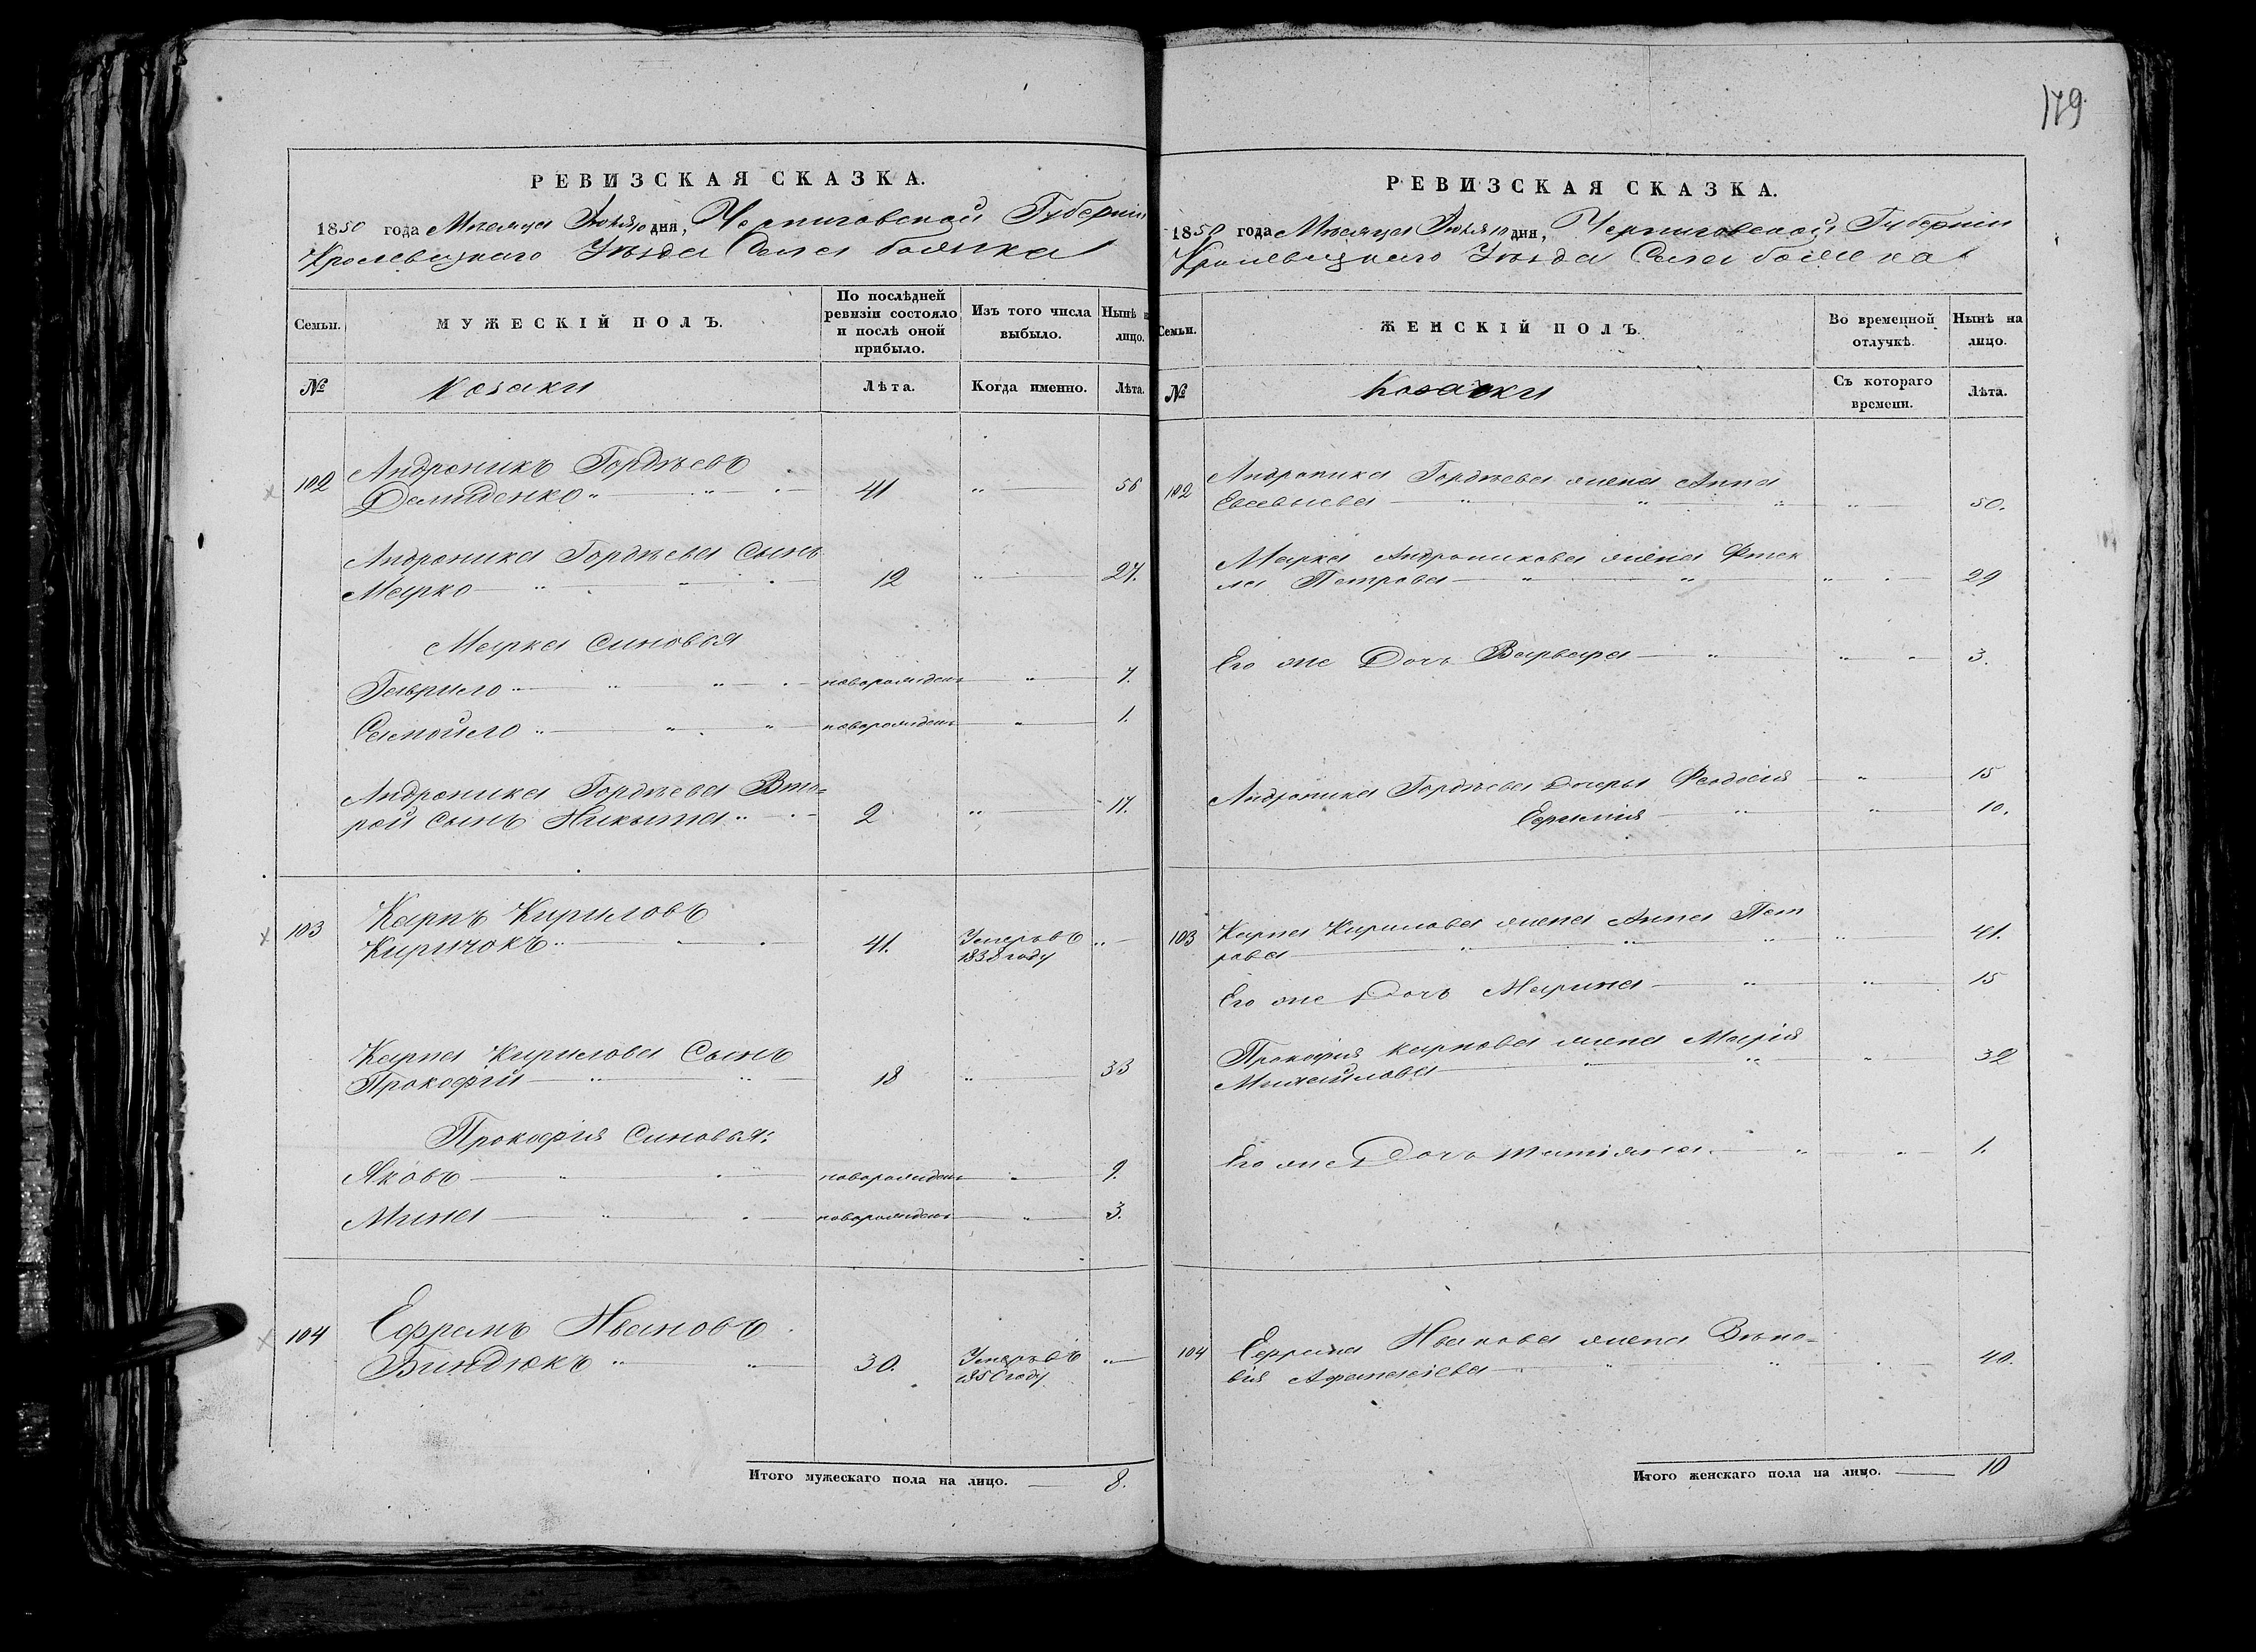 179
РЕВИЗСКАЯ СКАЗКА.
1850 года Мѣсяца Июля 10 дня, Черниговской Губерніи
Кролевецкаго Уѣзда Села
Семьи.
МУЖЕСКІЙ ПОЛЪ.
По послѣдней ревизіи состояло и послѣ оной прибыло.
Изъ того числа выбыло.
Нынѣ н лицо.
№
Козаки
Лѣта.
Когда именно.
Лѣта.
102 Андроникъ Гордѣевъ
Демиденко 41 56
Андроника Гордѣева Сынъ
Марко 12 27.
Марка Синовья
Гаврило новорожденъ 7.
Самойло новорожденъ 1.
Андроника Гордѣева Вто-
рой Сынъ Никыта 2 17.
103 Карпъ Кириловъ
Киричокъ 41. Умеръ въ
1838 году
Карпа Кирилова Сынъ
Прокофій 18 33
Прокофія Синовья:
Яковъ новорожденъ 9.
Мина новорожденъ 3.
104 Ефремъ Ивановъ
Биндюкъ 30. Умеръ въ
1850 году
Итого мужескаго пола на лицо. 8.
РЕВИЗСКАЯ СКАЗКА.
1850 года Мѣсяца Июля 10 дня, Черниговской Губерніи
Кролевецкаго Уѣзда Села
Семьи.
ЖЕНСКІЙ ПОЛЪ.
Во временной отлучкѣ.
Нынѣ на лицо.
№
Козачки
Съ котораго времени.
Лѣта.
102 Андроника Гордѣева жена Анна
Евсевьева 50.
Марка Андроникова жена Фтек
ла Петрова 29
Его же Дочь Варвара 3.
Андроника Гордѣева Дочеры Феодосія 15
Ефимія 10.
103 Карпа Кирилова жена Анна Пет
рова 41.
Его же Дочь Марина 15
Прокофія Карпова жена Марія
Михайлова 32
Его же Дочь Татіяна 1.
104 Ефрема Иванова жена Зѣно-
вія Афанасіева 40.
Итого женскаго пола на лицо. 10